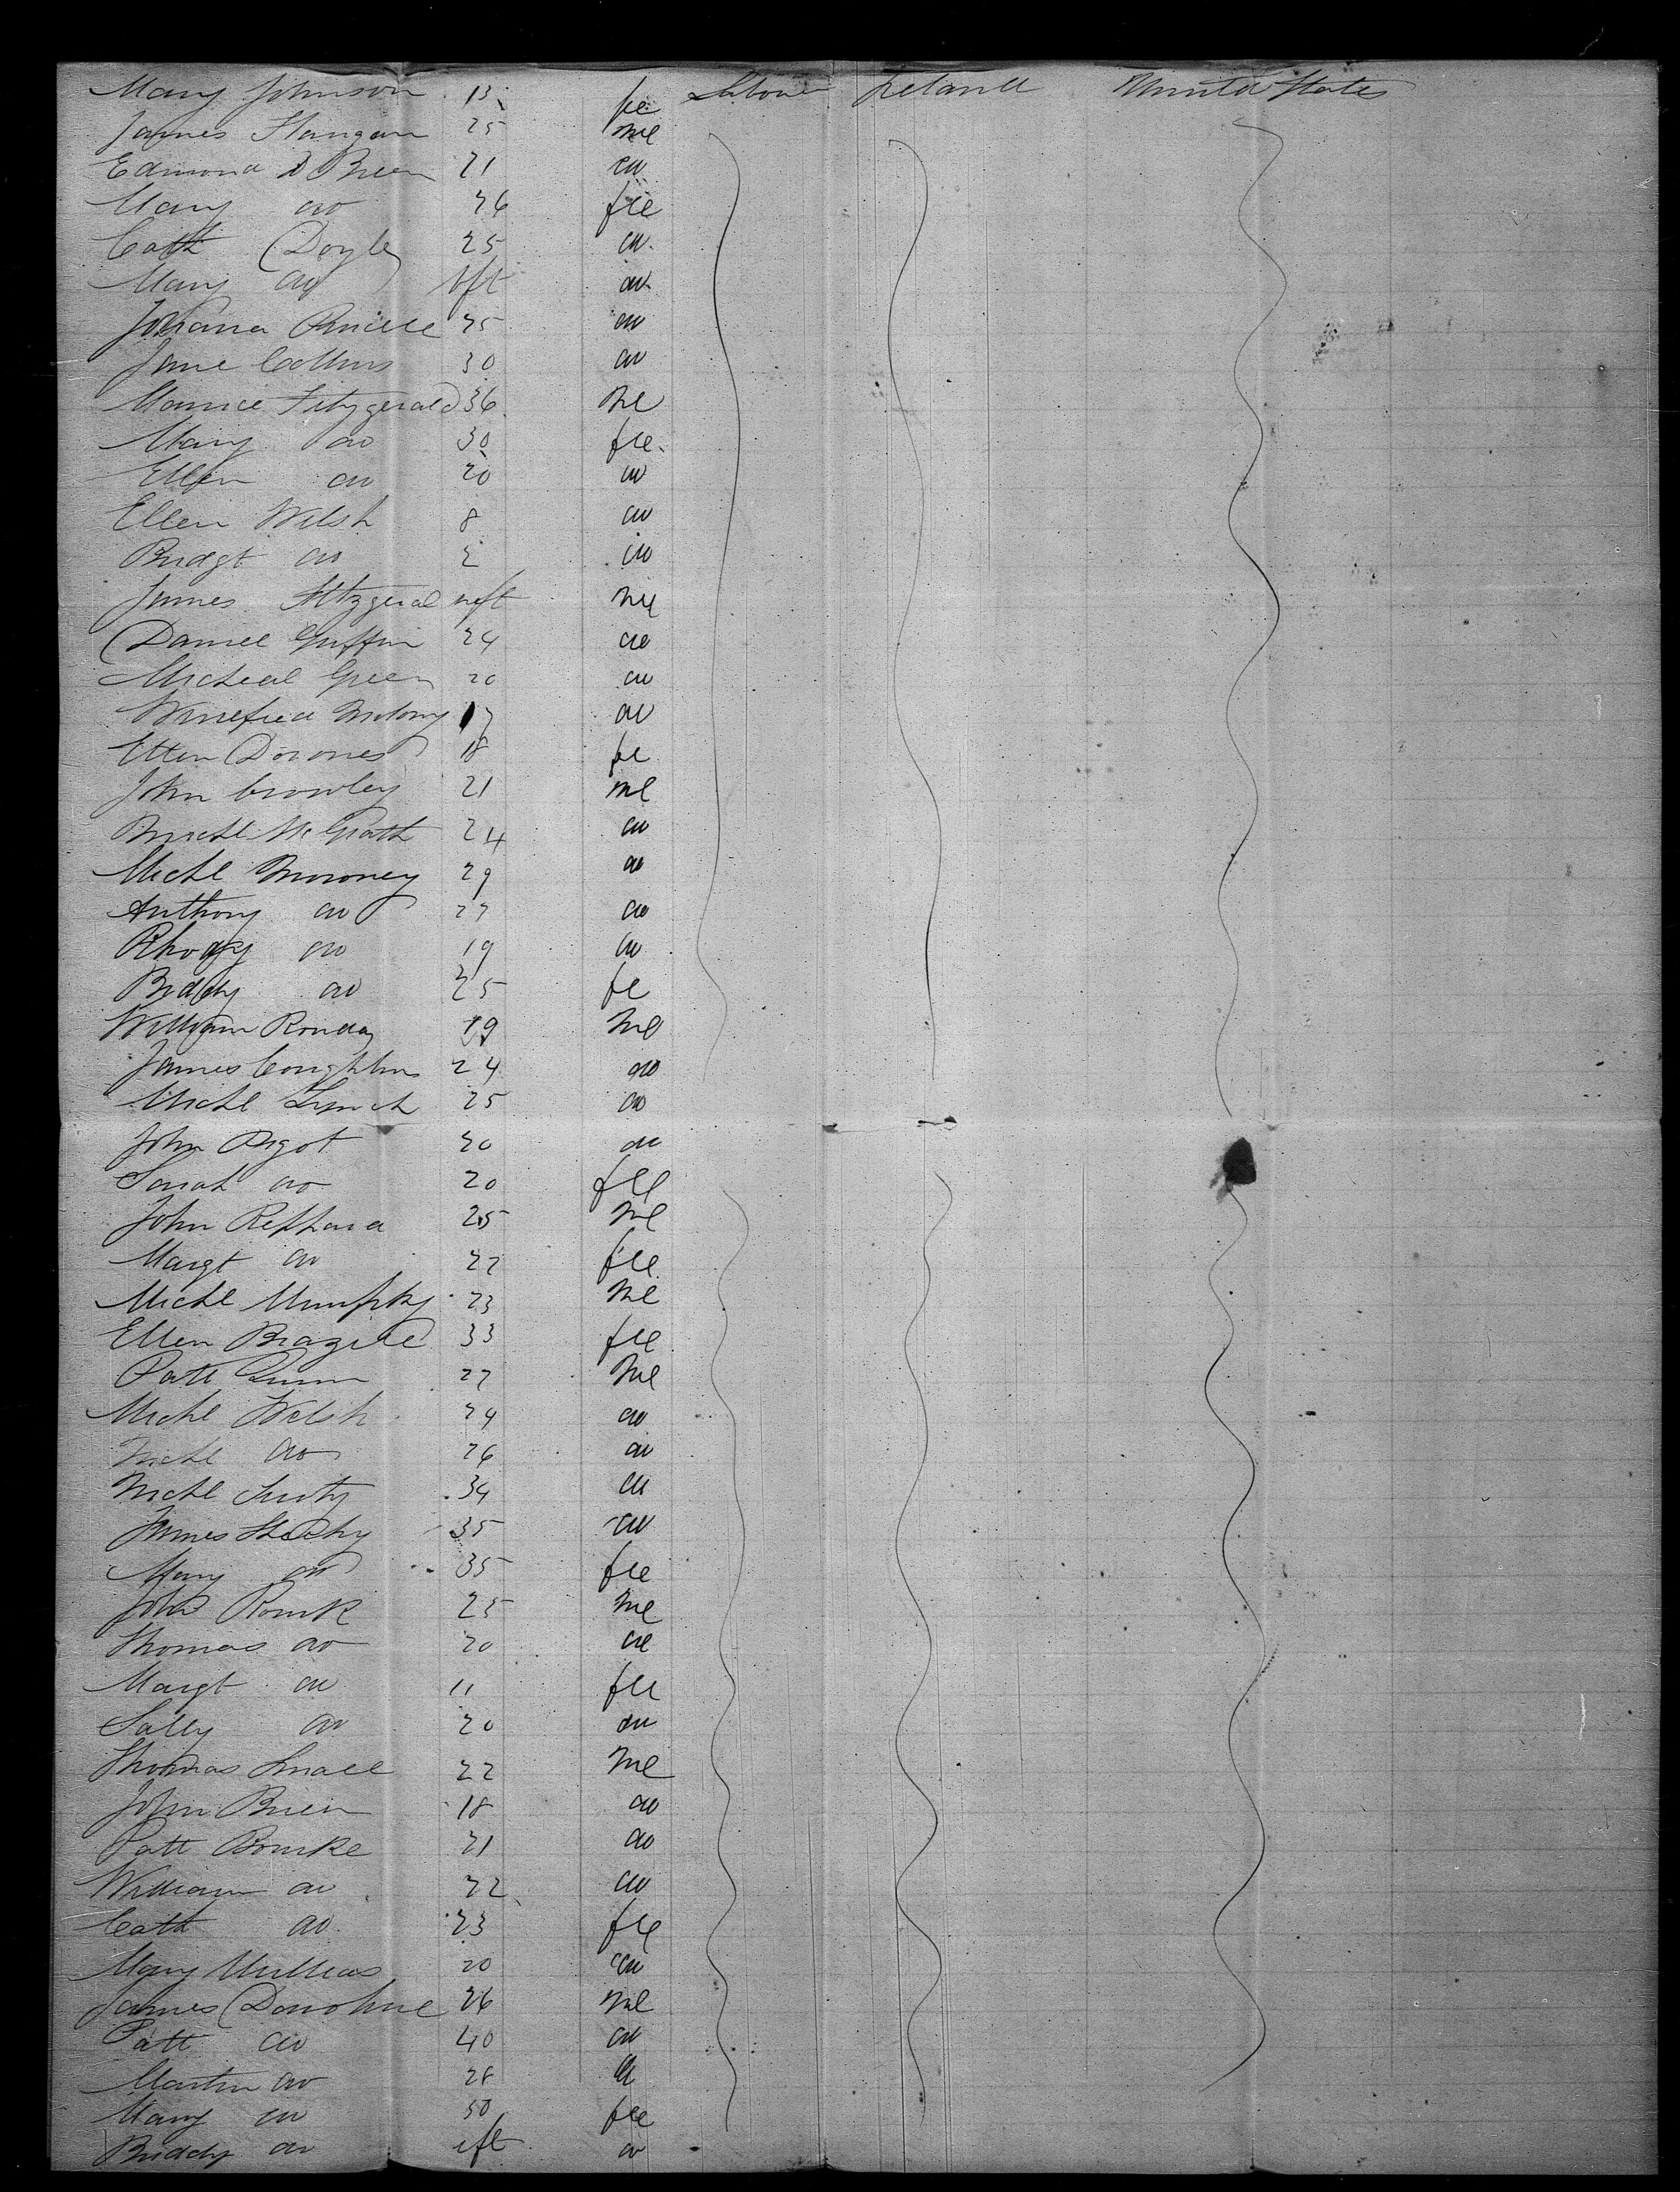 Mary Johnson 13 fe Labour Ireland United States
James Flangan 25 me
Edmond D Breen 21 do
Mary do 26 fle
Cath Doyle 25 do
Mary do Ift do
Johana 25 do
Jane Collins 30 do
Maurice Fitzgerald 36 Me
Mary do 30 fle
Ellen do 20 do
Ellen Welsh 8 do
Bridgt do 2 do
James Fitzgeral inft me
Daniel Griffin 24 do
Micheal Green 20 do
Winefred Molony 17 do
Ellen Downes 18 fe
John Crowley 21 me
Michl McGrath 24 do
Michl Moroney 29 do
Anthony do 27 do
Rhody do 19 do
Biddy do 25 fe
William 19 Me
James Coughlin 24 do
Michl Lynch 25 do
John Pigot 20 do
Sarah do 20 fle
John 25 me
Margt do 22 fle
Michl Murphy 23 Me
Ellen Brazile 33 fle
Patt Quinn 27 Me
Michl Welsh 24 do
Michl do 26 do
Michl 34 do
James Sheehy 35 do
Mary do 35 fle
John Rourk 25 me
Thomas do 20 do
Margt do 11 fle
Sally do 20 do
Thomas Small 22 me
John Brien 18 do
Patt Bourke 21 do
William do 22 do
Cath do 23 fle
Mary 20 do
James Donohue 26 me
Patt do 40 do
Martin do 28 do
Mary do 50 fle
Biddy do ift do